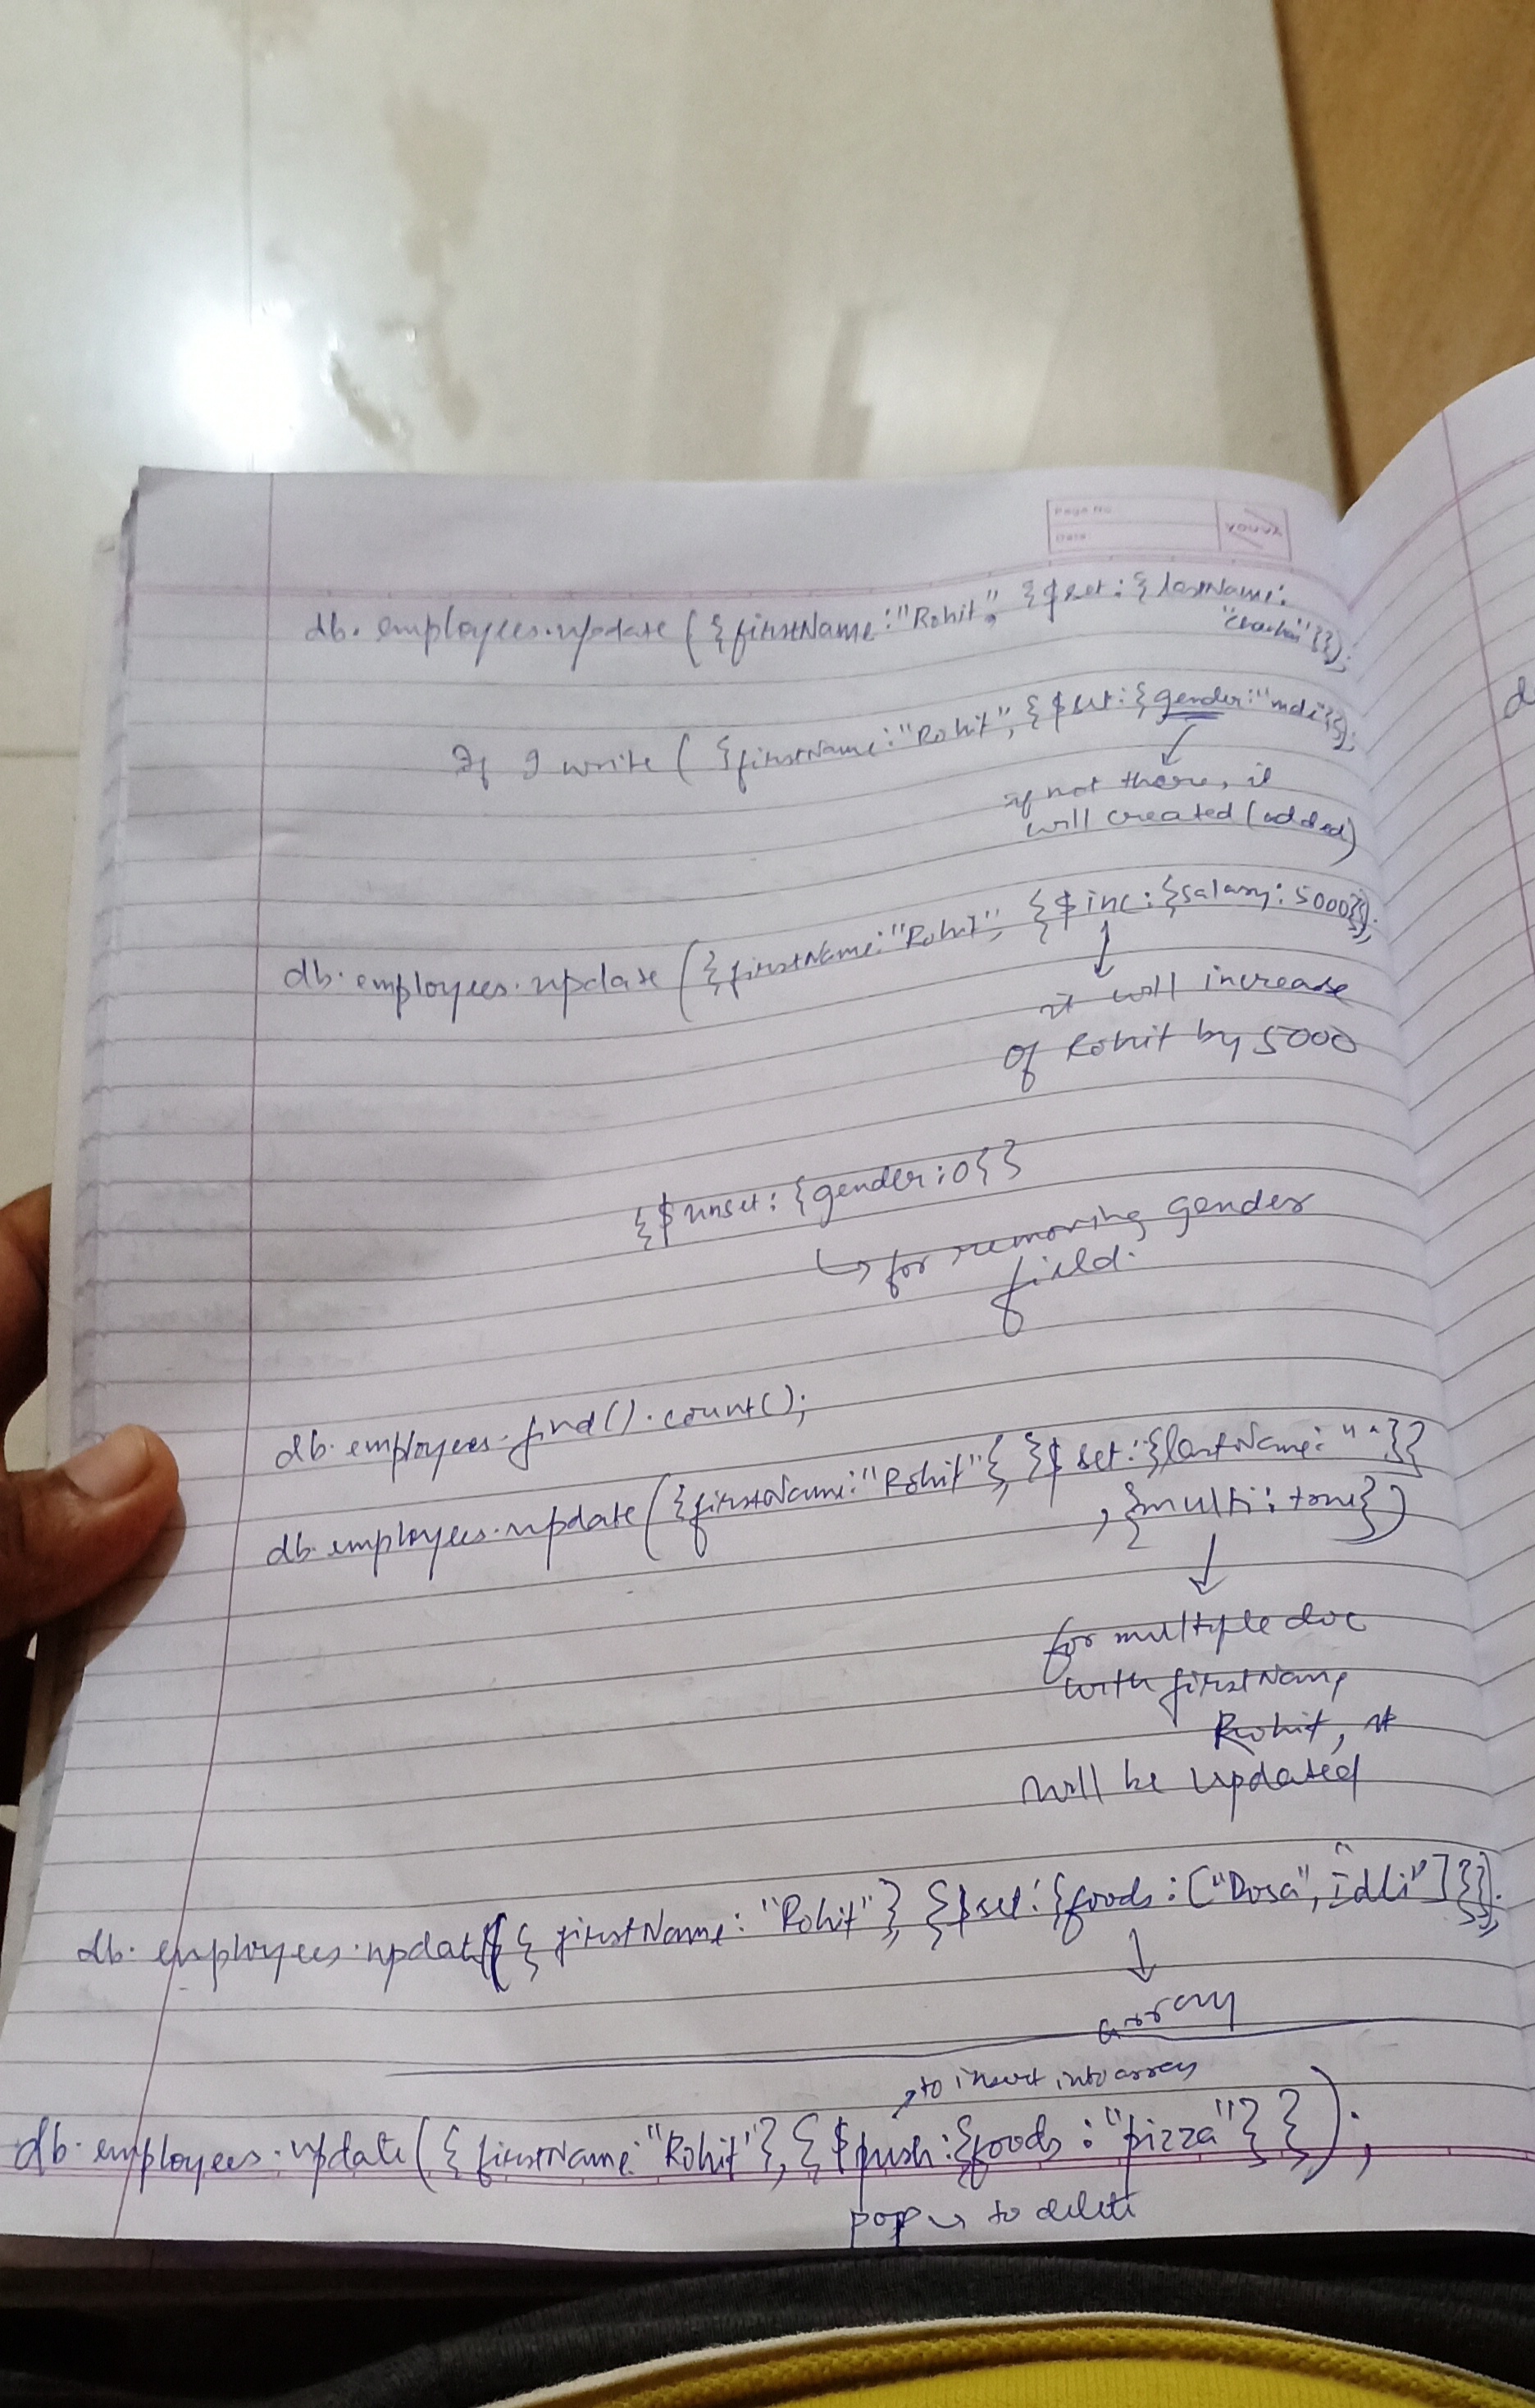 Page No.
Date
YOUVA
db.employees.update({firstName:"Rohit", {$set:{lastName:
}});
If I write ({firstName:"Rohit", {$set:{gender:"mal}});
if not there, it
will created (added)
db.employees.update({firstName:"Rohit", {$inc:{salary:5000}});
it will increase
of Rohit by 5000
{$unset:{gender:0}}
↳ for removing gender
field.
db.employees.find().count();
db.employees.update({firstName:"Rohit"}, {$set:{lastName:""}}
, {multi:true})
for multiple doc
with firstName
Rohit, it
will be updated
db.employees.update({firstName:"Rohit"}, {$set:{foods:["Dosa", "idli"]}});
array
→ to insert into array
db.employees.update({firstName:"Rohit"}, {$push:{foods:"pizza"}});
pop → to delete
d